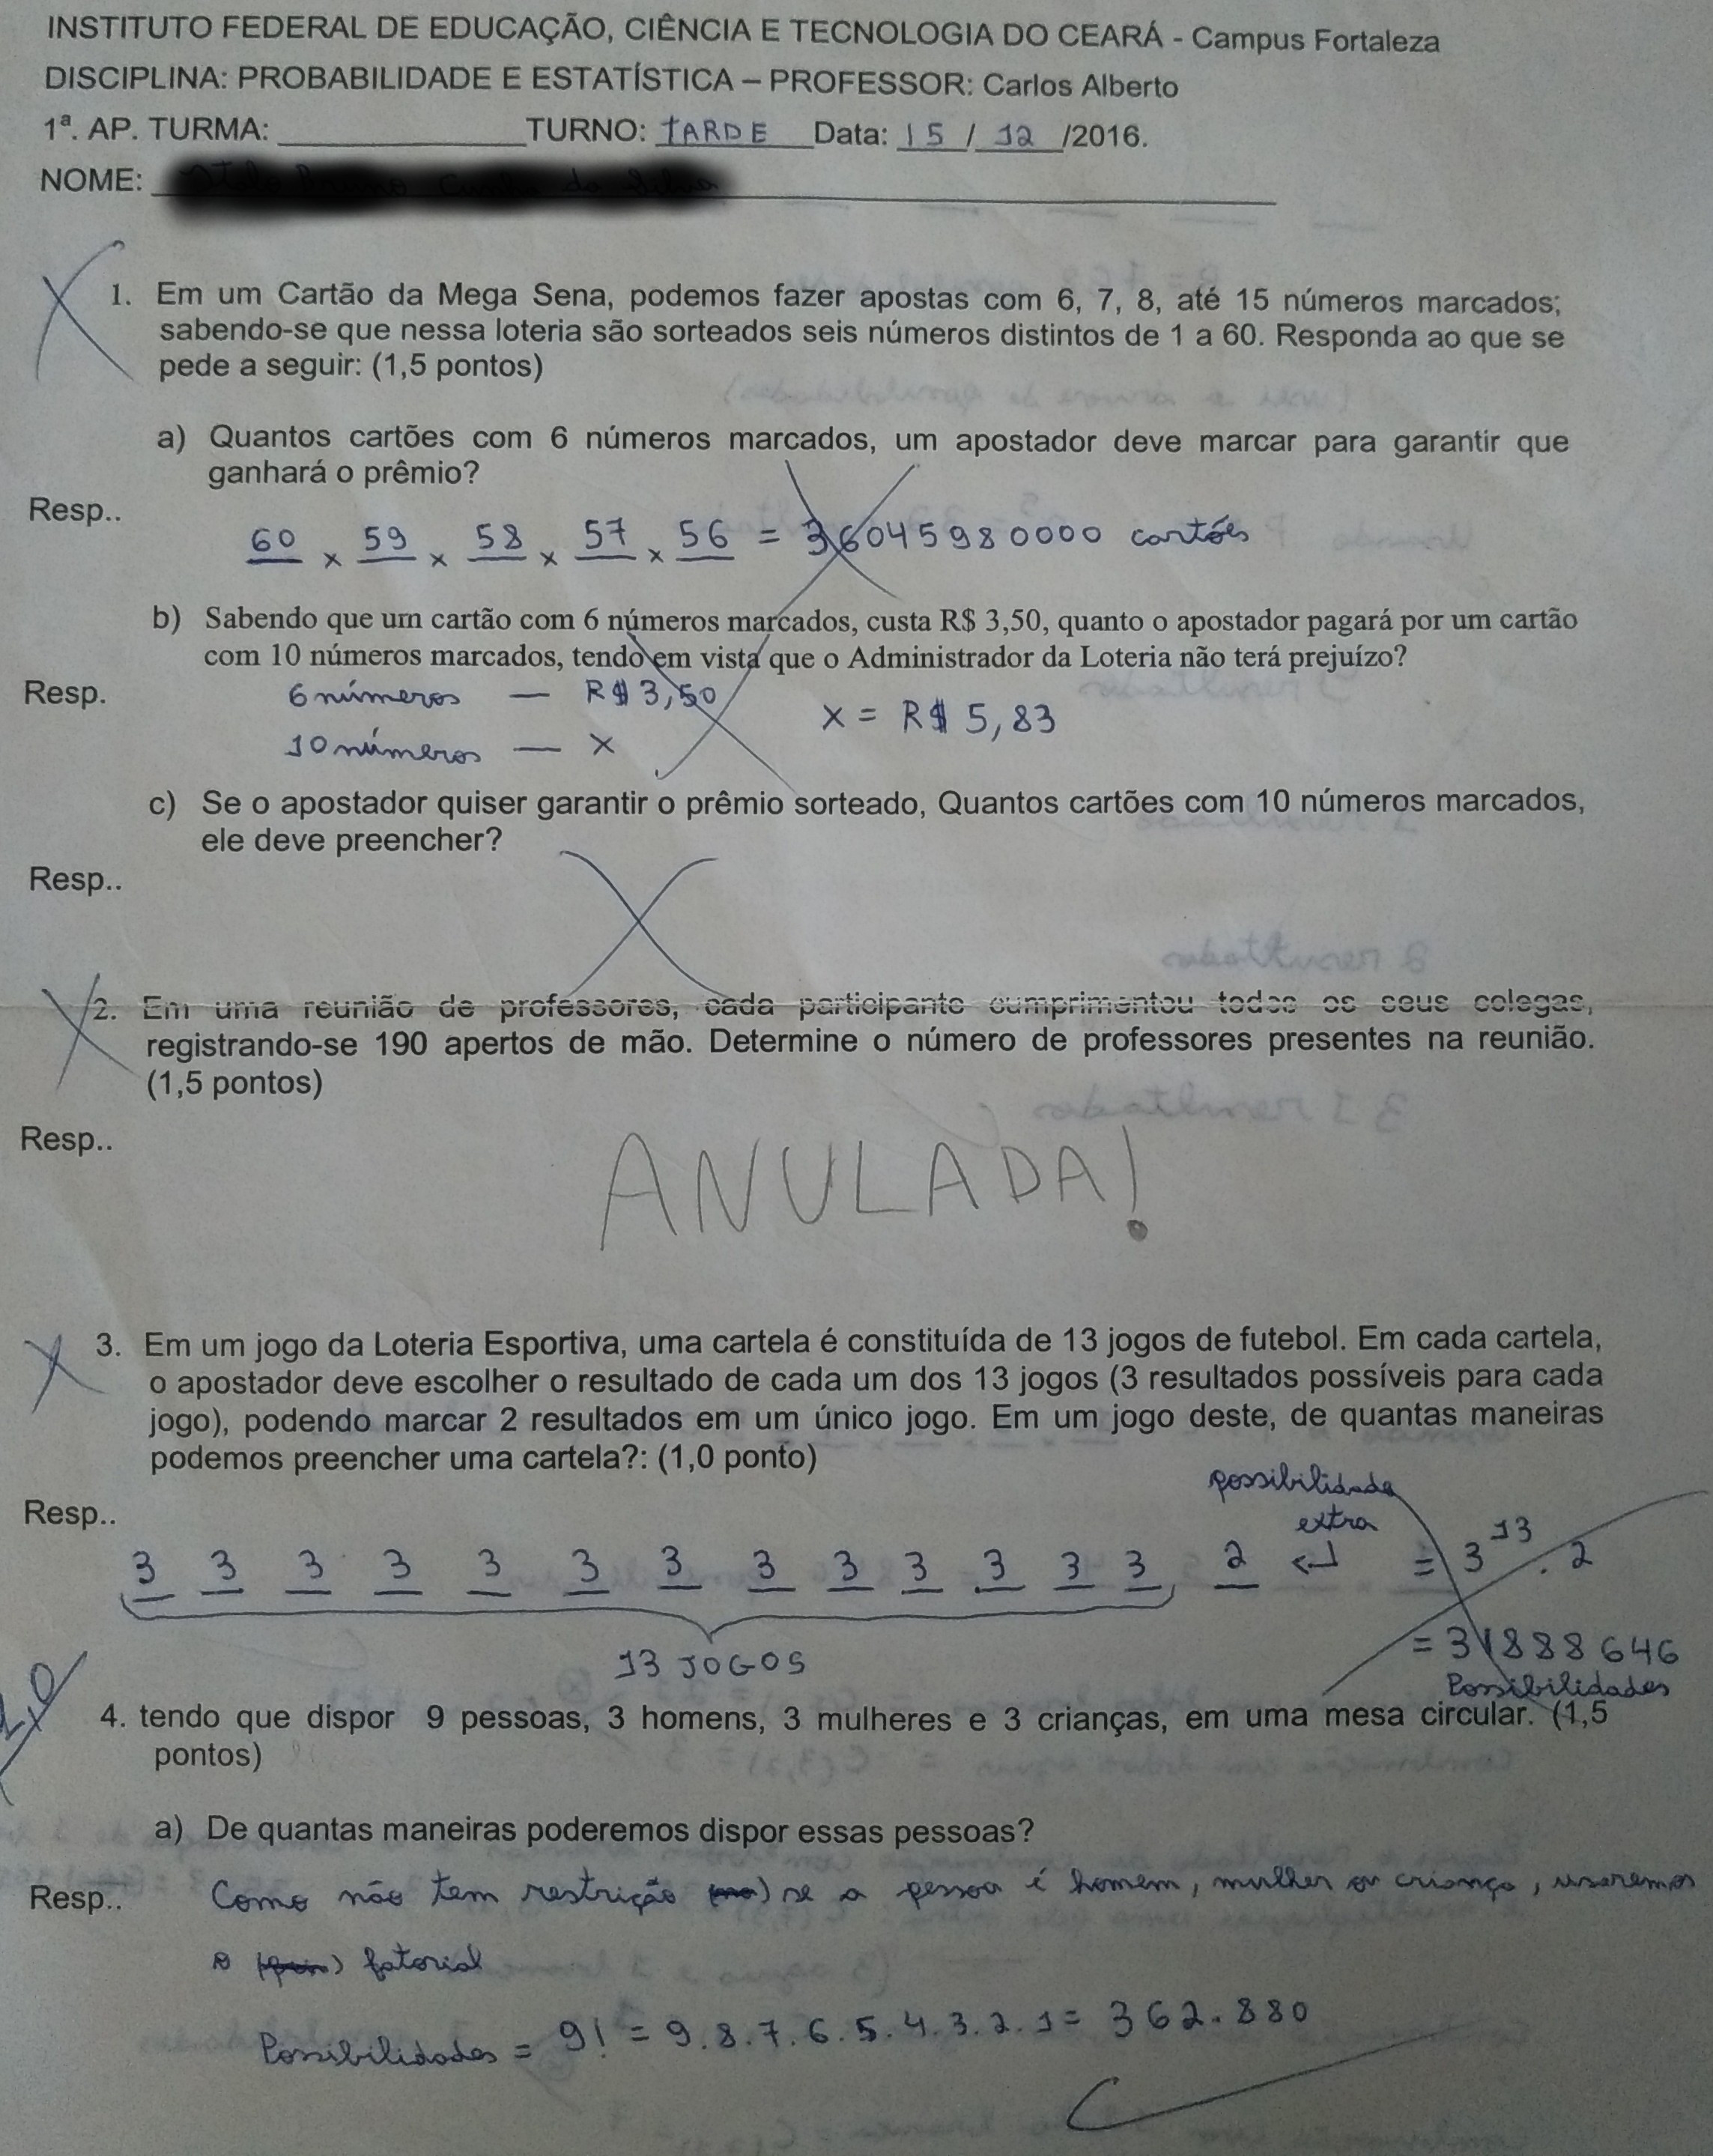 INSTITUTO FEDERAL DE EDUCAÇÃO, CIÊNCIA E TECNOLOGIA DO CEARÁ - Campus Fortaleza
DISCIPLINA: PROBABILIDADE E ESTATÍSTICA – PROFESSOR: Carlos Alberto
1ª. AP. TURMA: ______________ TURNO: TARDE Data: 15 / 12 /2016.
NOME:
1. Em um Cartão da Mega Sena, podemos fazer apostas com 6, 7, 8, até 15 números marcados;
sabendo-se que nessa loteria são sorteados seis números distintos de 1 a 60. Responda ao que se
pede a seguir: (1,5 pontos)
a) Quantos cartões com 6 números marcados, um apostador deve marcar para garantir que
ganhará o prêmio?
Resp..
60 x 59 x 58 x 57 x 56 = 36045980000 cartões
b) Sabendo que um cartão com 6 números marcados, custa R$ 3,50, quanto o apostador pagará por um cartão
com 10 números marcados, tendo em vista que o Administrador da Loteria não terá prejuízo?
Resp. 6 números — R$ 3,50 x = R$ 5,83
10 números — x
c) Se o apostador quiser garantir o prêmio sorteado, Quantos cartões com 10 números marcados,
ele deve preencher?
Resp..
2. Em uma reunião de professores, cada participante cumprimentou todos os seus colegas,
registrando-se 190 apertos de mão. Determine o número de professores presentes na reunião.
(1,5 pontos)
Resp..
ANULADA!
3. Em um jogo da Loteria Esportiva, uma cartela é constituída de 13 jogos de futebol. Em cada cartela,
o apostador deve escolher o resultado de cada um dos 13 jogos (3 resultados possíveis para cada
jogo), podendo marcar 2 resultados em um único jogo. Em um jogo deste, de quantas maneiras
podemos preencher uma cartela?: (1,0 ponto)
Resp..
possibilidade
extra
3 3 3 3 3 3 3 3 3 3 3 3 3 2 ↵ = 3¹³ . 2
13 JOGOS
= 31888646
Possibilidades
1,0
4. tendo que dispor 9 pessoas, 3 homens, 3 mulheres e 3 crianças, em uma mesa circular. (1,5
pontos)
a) De quantas maneiras poderemos dispor essas pessoas?
Resp.. Como não tem restrição se a pessoa é homem, mulher ou criança, usaremos
o fatorial
Possibilidades = 9! = 9.8.7.6.5.4.3.2.1 = 362.880